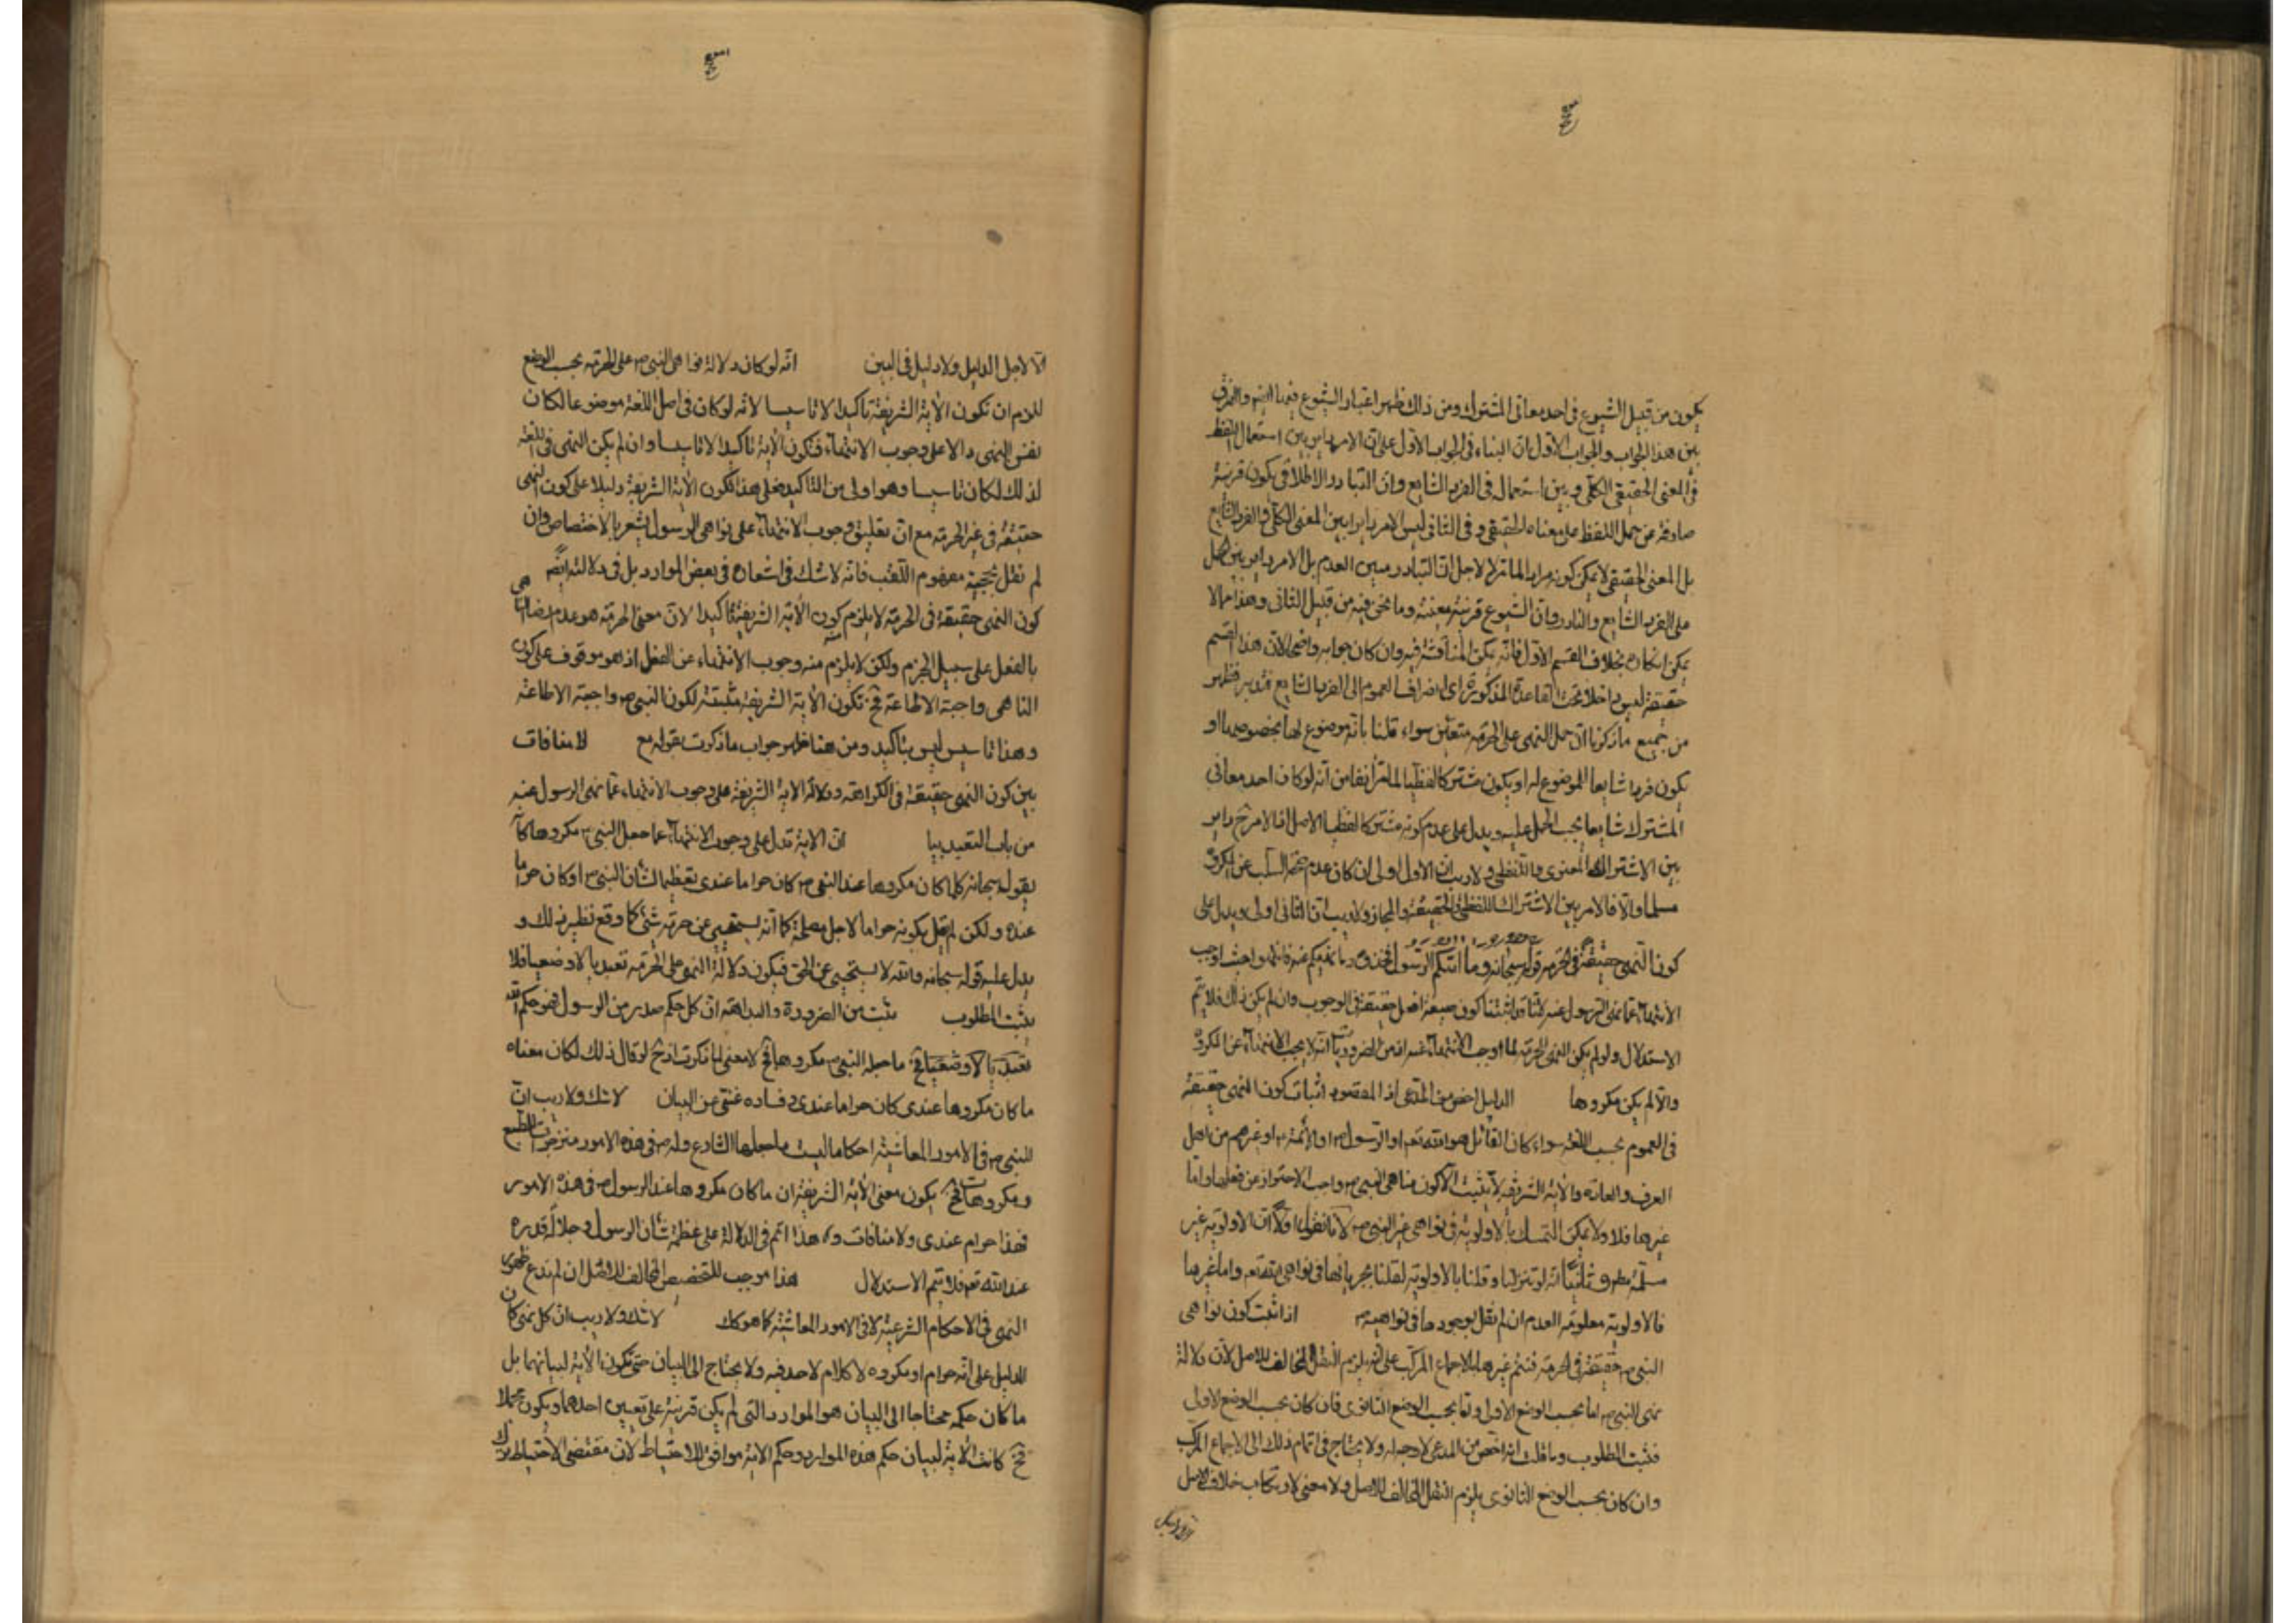 يكون من قبيل الشيوع فى احد معانى المشترك ومن ذلك ظهر اعتبار الشيوع فيما والفرق
بين هذا الجواب والجواب الاول ان البناء فى الجواب الاول على ان الامر داير بين استعمال اللفظ
فى المعنى الحقيقى الكلى وبين استعماله فى الفرد الشايع وان التبادر الاطلاقى يكون قرينة
صارفة عن حمل اللفظ على معناه الحقيقى وفى الثانى ليس الامر دايرا بين المعنى الكلى والفرد الشايع
بل المعنى الحقيقى لا يمكن كونه مرادا لاجل ان التبادر مبين العدم بل الامر داير بين الحمل
على الفرد الشايع والنادر وان الشيوع قرينة معينة وما نحن فيه من قبيل الثانى وهذا مما لا
يمكن انكاره بخلاف القسم الاول فانه يمكن المناقشة فيه وان كان جوابه واضحا لان هذا القسم
حقيقة ليس داخلا تحت القاعدة المذكورة اى انصراف العموم الى الفرد الشايع فتدبر فظهر
من جميع ما ذكرنا ان حمل النهى على الحرمة متعين سواء قلنا بانه موضوع لها بخصوصها او
يكون فردا شايعا للموضوع له او يكون مشتركا لفظيا لما مر انفا من انه لو كان احد معانى
المشترك شايعا يجب الحمل عليه ويدل على عدم كونه مشتركا لفظيا الاصل اذ الامر ح داير
بين الاشتراك المعنوى واللفظى ولا ريب ان الاول اولى ان كان عدم صحة السلب عن المكروه
مسلما والا فالامر بين الاشتراك اللفظى والحقيقة والمجاز ولا ريب ان الثانى اولى ويدل على
كون النهى حقيقة فى الحرمة قوله سبحانه وما اتيكم الرسول فخذوه وما نهيكم عنه فانتهوا حيث اوجب
الانتهاء عما نهى الرسول عنه لانا قد اثبتنا كون صيغة افعل حقيقة فى الوجوب وان لم يكن ذلك فلا يتم
الاستدلال ولو لم يكن النهى للحرمة لما اوجب الانتهاء عنه اذ من الضروريات انه لا يجب الانتهاء عن المكروه
والا لم يكن مكروها الدليل اخص من المدعى اذ المقصود اثبات كون النهى حقيقة
فى العموم بحسب اللغة سواء كان القائل هو الله تعه او الرسول ص او الائمة ع او غيرهم من اهل
العرف والعادة والاية الشريفة لا يثبت الا كون مناهى النبى ص واجب الاحتراز عن فعلها واما
غيرها فلا ولا يمكن التمسك بالاولوية فى نواهى غير النبى ص لانا نقول اولا ان الاولوية غير
مسلمة مط وثانيا انه لو تنزلنا وقلنا بالاولوية لقلنا بجريانها فى نواهى الله تعه واما غيرها
فالاولوية معلومة العدم ان لم نقل بوجودها فى نواهيه ص اذا ثبت كون نواهى
النبى ص حقيقة فى الحرمة فنتم غيرها بالاجماع المركب على انه يلزم النقل المخالف للاصل لان دلالة
نهى النبى ص اما بحسب الوضع الاول واما بحسب الوضع الثانوى فان كان بحسب الوضع الاول
فثبت المطلوب وما قلت انه اخص من المدعى لا وجه له ولا يحتاج فى اتمام ذلك الى الاجماع المركب
وان كان بحسب الوضع الثانوى يلزم النقل المخالف للاصل ولا معنى لارتكاب خلاف الاصل
الا لاجل الدليل ولا دليل فى البين انه لو كان دلالة نواهى النبى ص على الحرمة بحسب الوضع
للزم ان تكون الاية الشريفة تاكيدا لا تاسيسا لانه لو كان فى اصل اللغة موضوعا لكان
نفس النهى دالا على وجوب الانتهاء فتكون الاية تاكيدا لا تاسيسا وان لم يكن النهى فى اللغة
لذلك لكان تاسيسا وهو اولى من التاكيد فعلى هذا تكون الاية الشريفة دليلا على كون النهى
حقيقة فى غير الحرمة مع ان تعليق وجوب الانتهاء على نواهى الرسول يشعر بالاختصاص وان
لم نقل بحجية مفهوم اللقب فانه لا شك فى اشعاره فى بعض الموارد بل فى دلالته ايضا
كون النهى حقيقة فى الحرمة لا يلزم كون الاية الشريفة تاكيدا لان معنى الحرمة هو عدم رضا الناهى
بالفعل على سبيل الجزم ولكن لا يلزم منه وجوب الانتهاء عن الفعل اذ هو موقوف على كون
الناهى واجبة الاطاعة فح تكون الاية الشريفة مثبتة لكون النبى ص واجبة الاطاعة
وهذا تاسيس ليس بتاكيد ومن هنا ظهر جواب ما ذكرت بقوله مع لا منافات
بين كون النهى حقيقة فى الكراهة ودلالة الاية الشريفة على وجوب الانتهاء عما نهى الرسول عنه
من باب التعبد بيا ان الاية تدل على وجوب الانتهاء عما جعل النبى ص مكروها كانه
يقول سبحانه كلما كان مكروها عند النبى ص كان حراما عندى تعظيما لشان النبى ص او كان حراما
عنده ولكن لم يقل بكونه حراما لاجل مصلحة كما انه يستحيى عن حرمة شئ كما وقع نظير ذلك و
يدل عليه قوله سبحانه والله لا يستحيى عن الحق فيكون دلالة النهى على الحرمة تعبديا لا وضعيا فلا
يثبت المطلوب ثبت من الضرورة والبداهة ان كل حكم صدر من الرسول فهو حكم الله
تعبديا لا وضعيا فح ما جعله النبى ص مكروها فح لا معنى لما ذكرت اذ ح لو قال ذلك لكان معناه
ما كان مكروها عندى كان حراما عندى وفساده غنى عن البيان لا شك ولا ريب ان
للنبى ص فى الامور المعاشية احكاما ليست ما جعلها الشارع وله ص فى هذه الامور منزجرات الطبع
ومكروهات فح يكون معنى الاية الشريفة ان ما كان مكروها عند الرسول ص فى هذه الامور
فهذا حرام عندى ولا منافات وهذا اتم فى الدلالة على عظمة شان الرسول وجلالة قدره
عند الله تعه فلا يتم الاستدلال هذا موجب للتخصيص المخالف للاصل ان لم ندع ظهور
النهى فى الاحكام الشرعية لا فى الامور المعاشية كما هو كك لا شك ولا ريب ان كل نهى كان
الدليل على انه حرام او مكروه لا كلام لاحد فيه ولا يحتاج الى البيان حتى تكون الاية لبيانهما بل
ما كان حكمه محتاجا الى البيان هو الموارد التى لم يكن قرينة على تعيين احدهما ويكون مجملا
فح كانت الاية لبيان حكم هذه الموارد وحكم الاية موافق للاحتياط لان مقتضى الاحتياط ترك